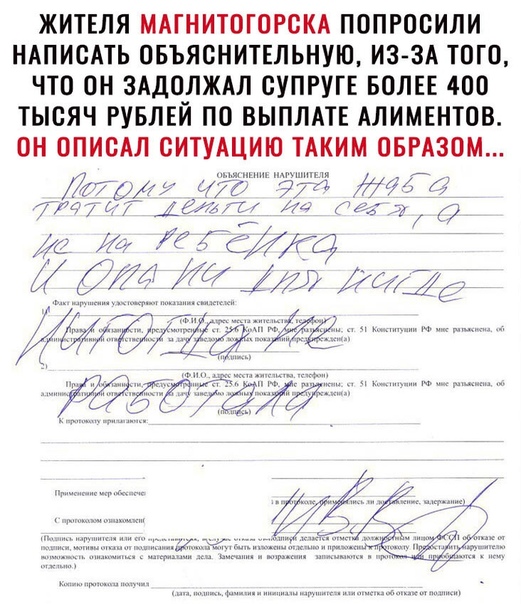 ЖИТЕЛЯ МАГНИТОГОРСКА ПОПРОСИЛИ
НАПИСАТЬ ОБЪЯСНИТЕЛЬНУЮ, ИЗ-ЗА ТОГО,
ЧТО ОН ЗАДОЛЖАЛ СУПРУГЕ БОЛЕЕ 400
ТЫСЯЧ РУБЛЕЙ ПО ВЫПЛАТЕ АЛИМЕНТОВ.
ОН ОПИСАЛ СИТУАЦИЮ ТАКИМ ОБРАЗОМ...
ОБЪЯСНЕНИЕ НАРУШИТЕЛЯ
Потому что эта жаба
тратит деньги на себя, а
не на ребёнка
и она ни дня нигде
Факт нарушения удостоверяют показания свидетелей:
1)
(Ф.И.О., адрес места жительства, телефон)
Права и обязанности, предусмотренные ст. 25.6 КоАП РФ, мне разъяснены; ст. 51 Конституции РФ мне разъяснена, об
административной ответственности за дачу заведомо ложных показаний предупрежден(а)
никогда не
(подпись)
2)
(Ф.И.О., адрес места жительства, телефон)
Права и обязанности, предусмотренные ст. 25.6 КоАП РФ, мне разъяснены; ст. 51 Конституции РФ мне разъяснена, об
административной ответственности за дачу заведомо ложных показаний предупрежден(а)
работала
(подпись)
К протоколу прилагаются:
Применение мер обеспече
в протоколе, применялись ли доставление, задержание)
С протоколом ознакомлен(
(Подпись нарушителя или его отказ от подписи делается отметка должностным лицом ФССП об отказе от
подписи, мотивы отказа от подписания протокола могут быть изложены отдельно и приложены к протоколу. Предоставить нарушителю
возможность ознакомиться с материалами дела. Замечания и возражения записываются в протокол или приобщаются к нему
отдельно.)
Копию протокола получил
(дата, подпись, фамилия и инициалы нарушителя или отметка об отказе от подписи)